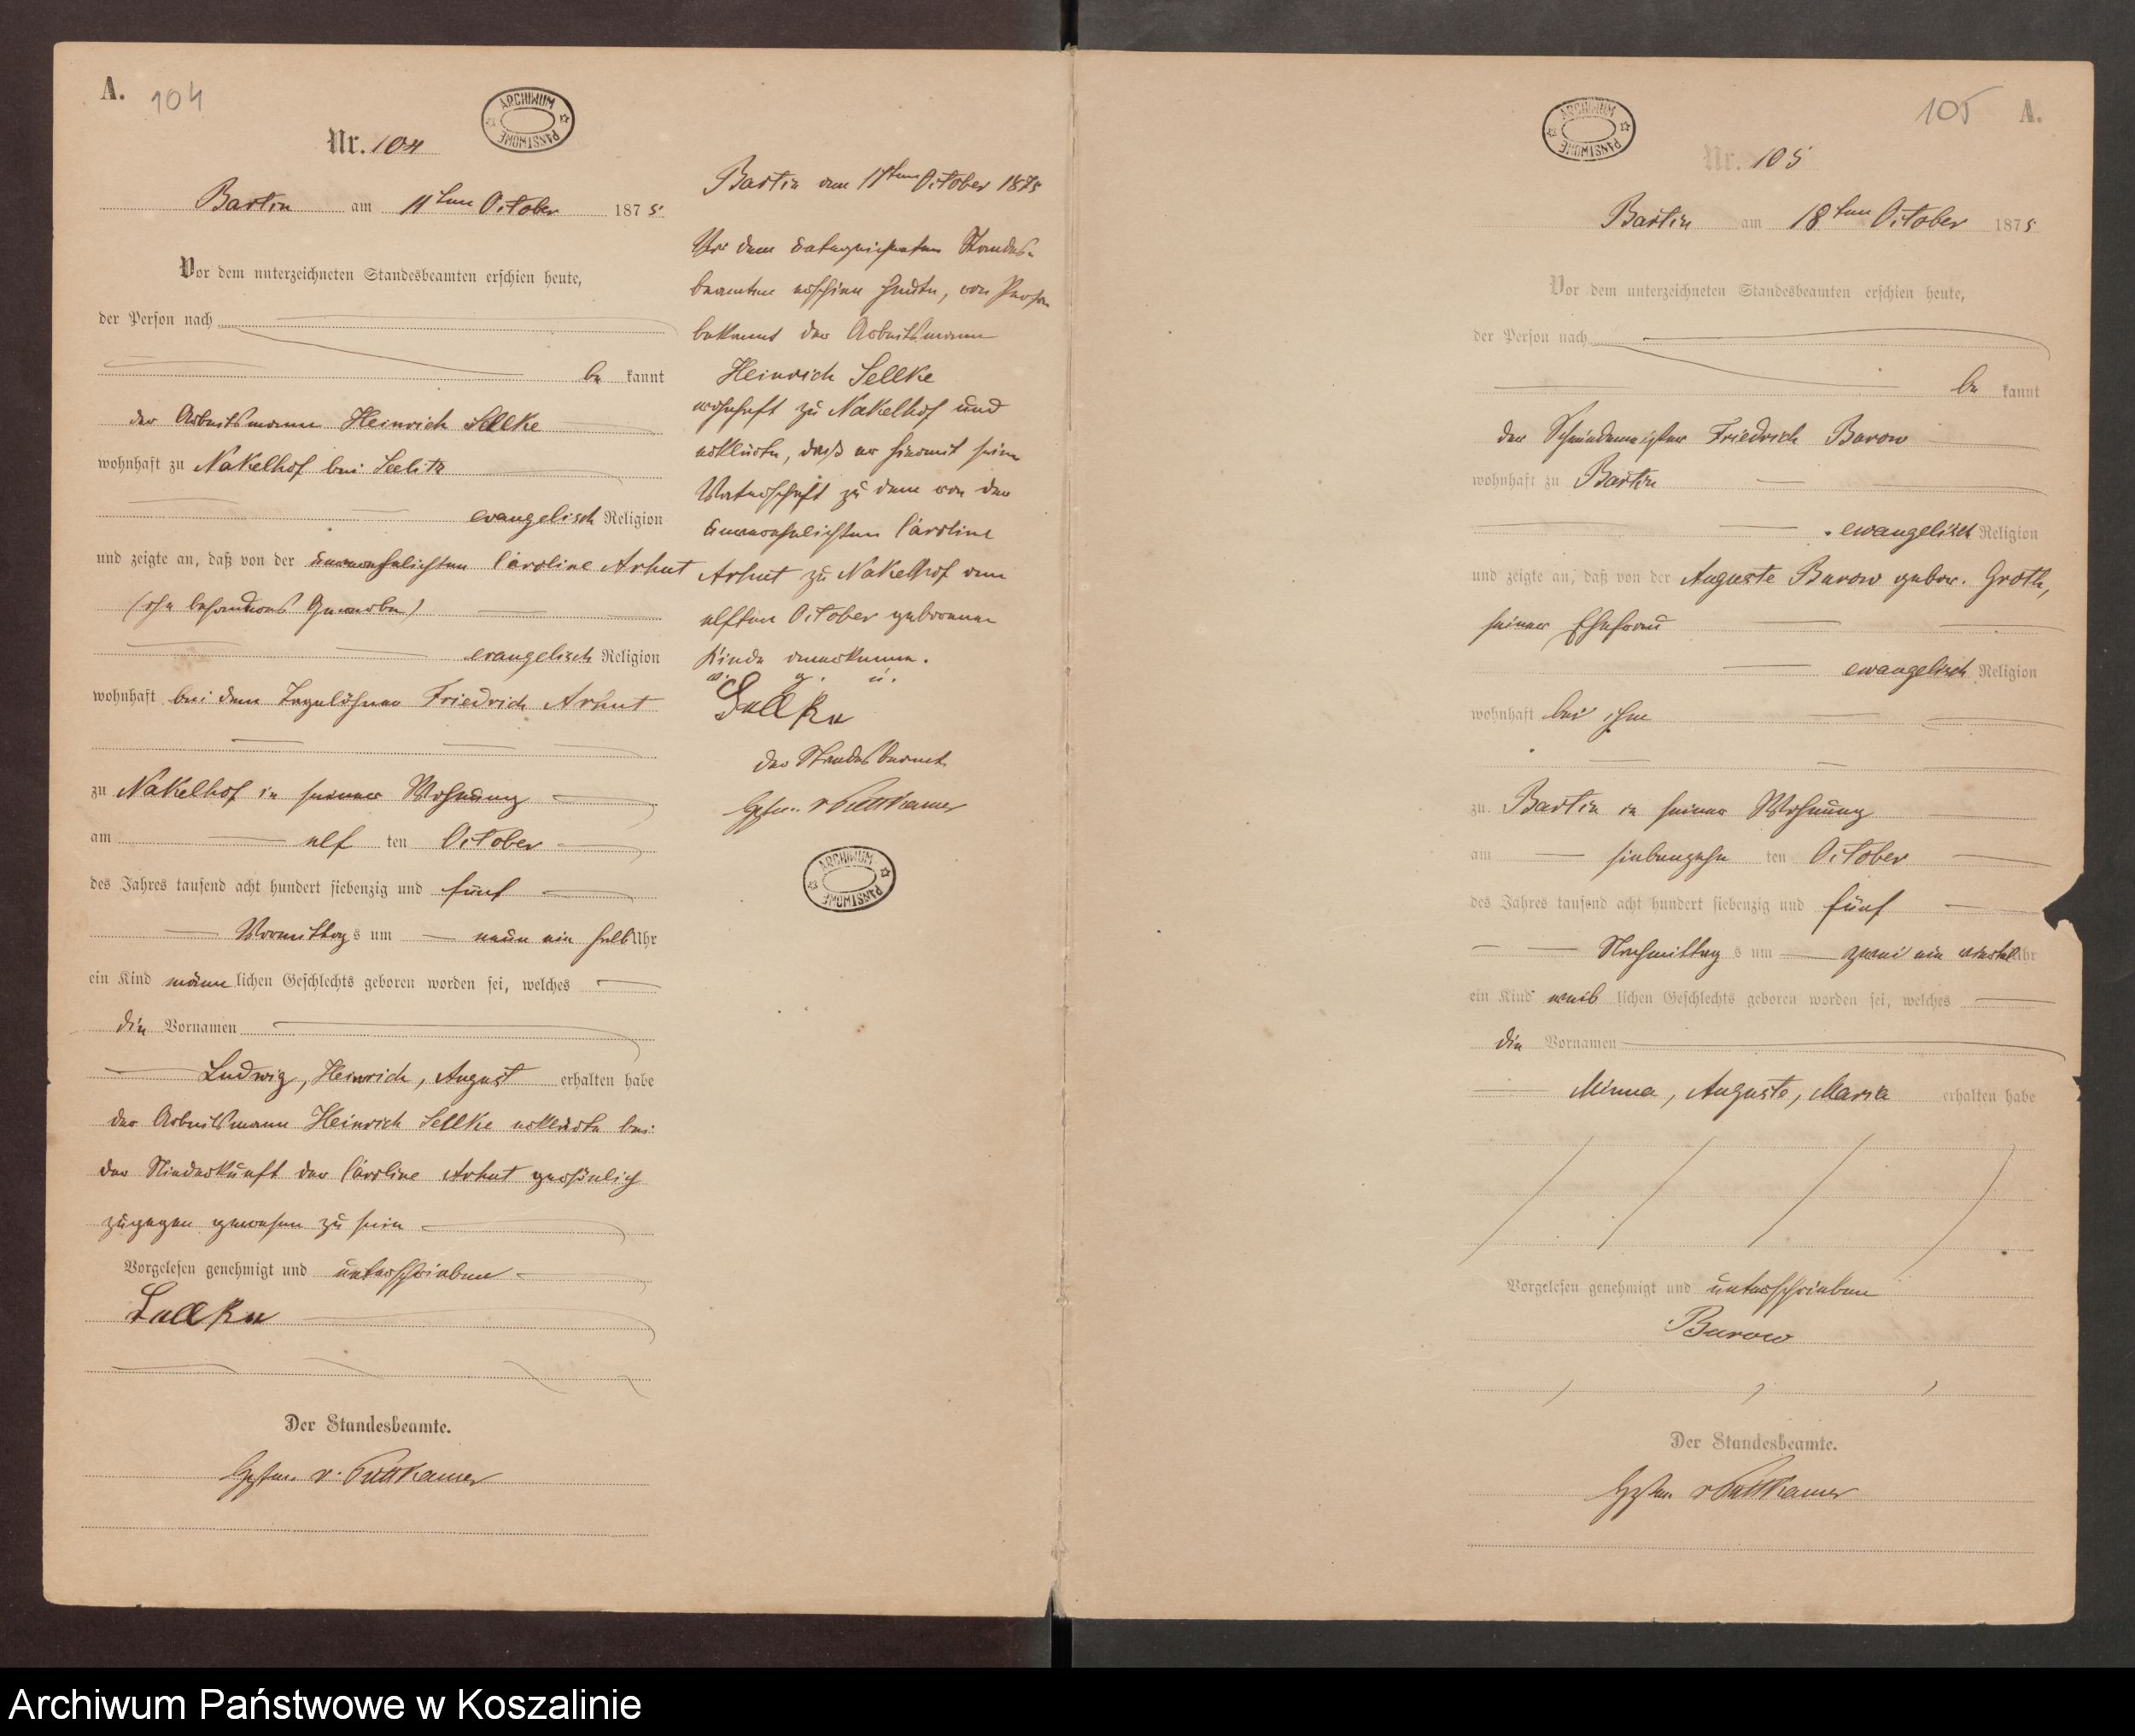 A. 104
ARCHIWUM PAŃSTWOWE
Nr. 104
Bartin am 11ten October 1875.
Vor dem unterzeichneten Standesbeamten erschien heute,
der Person nach
be kannt
der Arbeitsmann Heinrich Sellke
wohnhaft zu Nakelhof bei Seelitz
evangelisch Religion
und zeigte an, daß von der unverehelichten Caroline Arhut
(ohne besonderes Gewerbe)
evangelisch Religion
wohnhaft bei dem Tagelöhner Friedrich Arhut
zu Nakelhof in seiner Wohnung
am elf ten October
des Jahres tausend acht hundert siebenzig und fünf
Vormittag s um neun ein halb Uhr
ein Kind männ lichen Geschlechts geboren worden sei, welches
die Vornamen
Ludwig, Heinrich, August erhalten habe
der Arbeitsmann Heinrich Sellke erklärte bei
der Niederkunft der Caroline Arhut persönlich
zugegen gewesen zu sein
Vorgelesen genehmigt und unterschrieben
Sellke
Der Standesbeamte.
v. Puttkamer
Bartin am 11ten October 1875
Vor dem unterzeichneten Standes-
beamten erschien heute, von Person
bekannt der Arbeitsmann
Heinrich Sellke
wohnhaft zu Nakelhof und
erklärte, daß er hiermit seine
Vaterschaft zu dem von der
unverehelichten Caroline
Arhut zu Nakelhof am
elften October geborenen
Kinde anerkenne.
v. g. u.
Sellke
der Standesbeamte
v Puttkamer
ARCHIWUM PAŃSTWOWE
105 A.
ARCHIWUM PAŃSTWOWE
Nr. 105
Bartin am 18ten October 1875
Vor dem unterzeichneten Standesbeamten erschien heute,
der Person nach
be kannt
der Schmiedemeister Friedrich Barow
wohnhaft zu Bartin
evangelisch Religion
und zeigte an, daß von der Auguste Barow gebor. Groth,
seiner Ehefrau
evangelisch Religion
wohnhaft bei ihm
zu Bartin in seiner Wohnung
am siebenzehn ten October
des Jahres tausend acht hundert siebenzig und fünf
Nachmittag s um zwei ein viertel Uhr
ein Kind weib lichen Geschlechts geboren worden sei, welches
die Vornamen
Minna, Auguste, Maria erhalten habe
Vorgelesen genehmigt und unterschrieben
Barow
Der Standesbeamte.
v Puttkamer
Archiwum Państwowe w Koszalinie